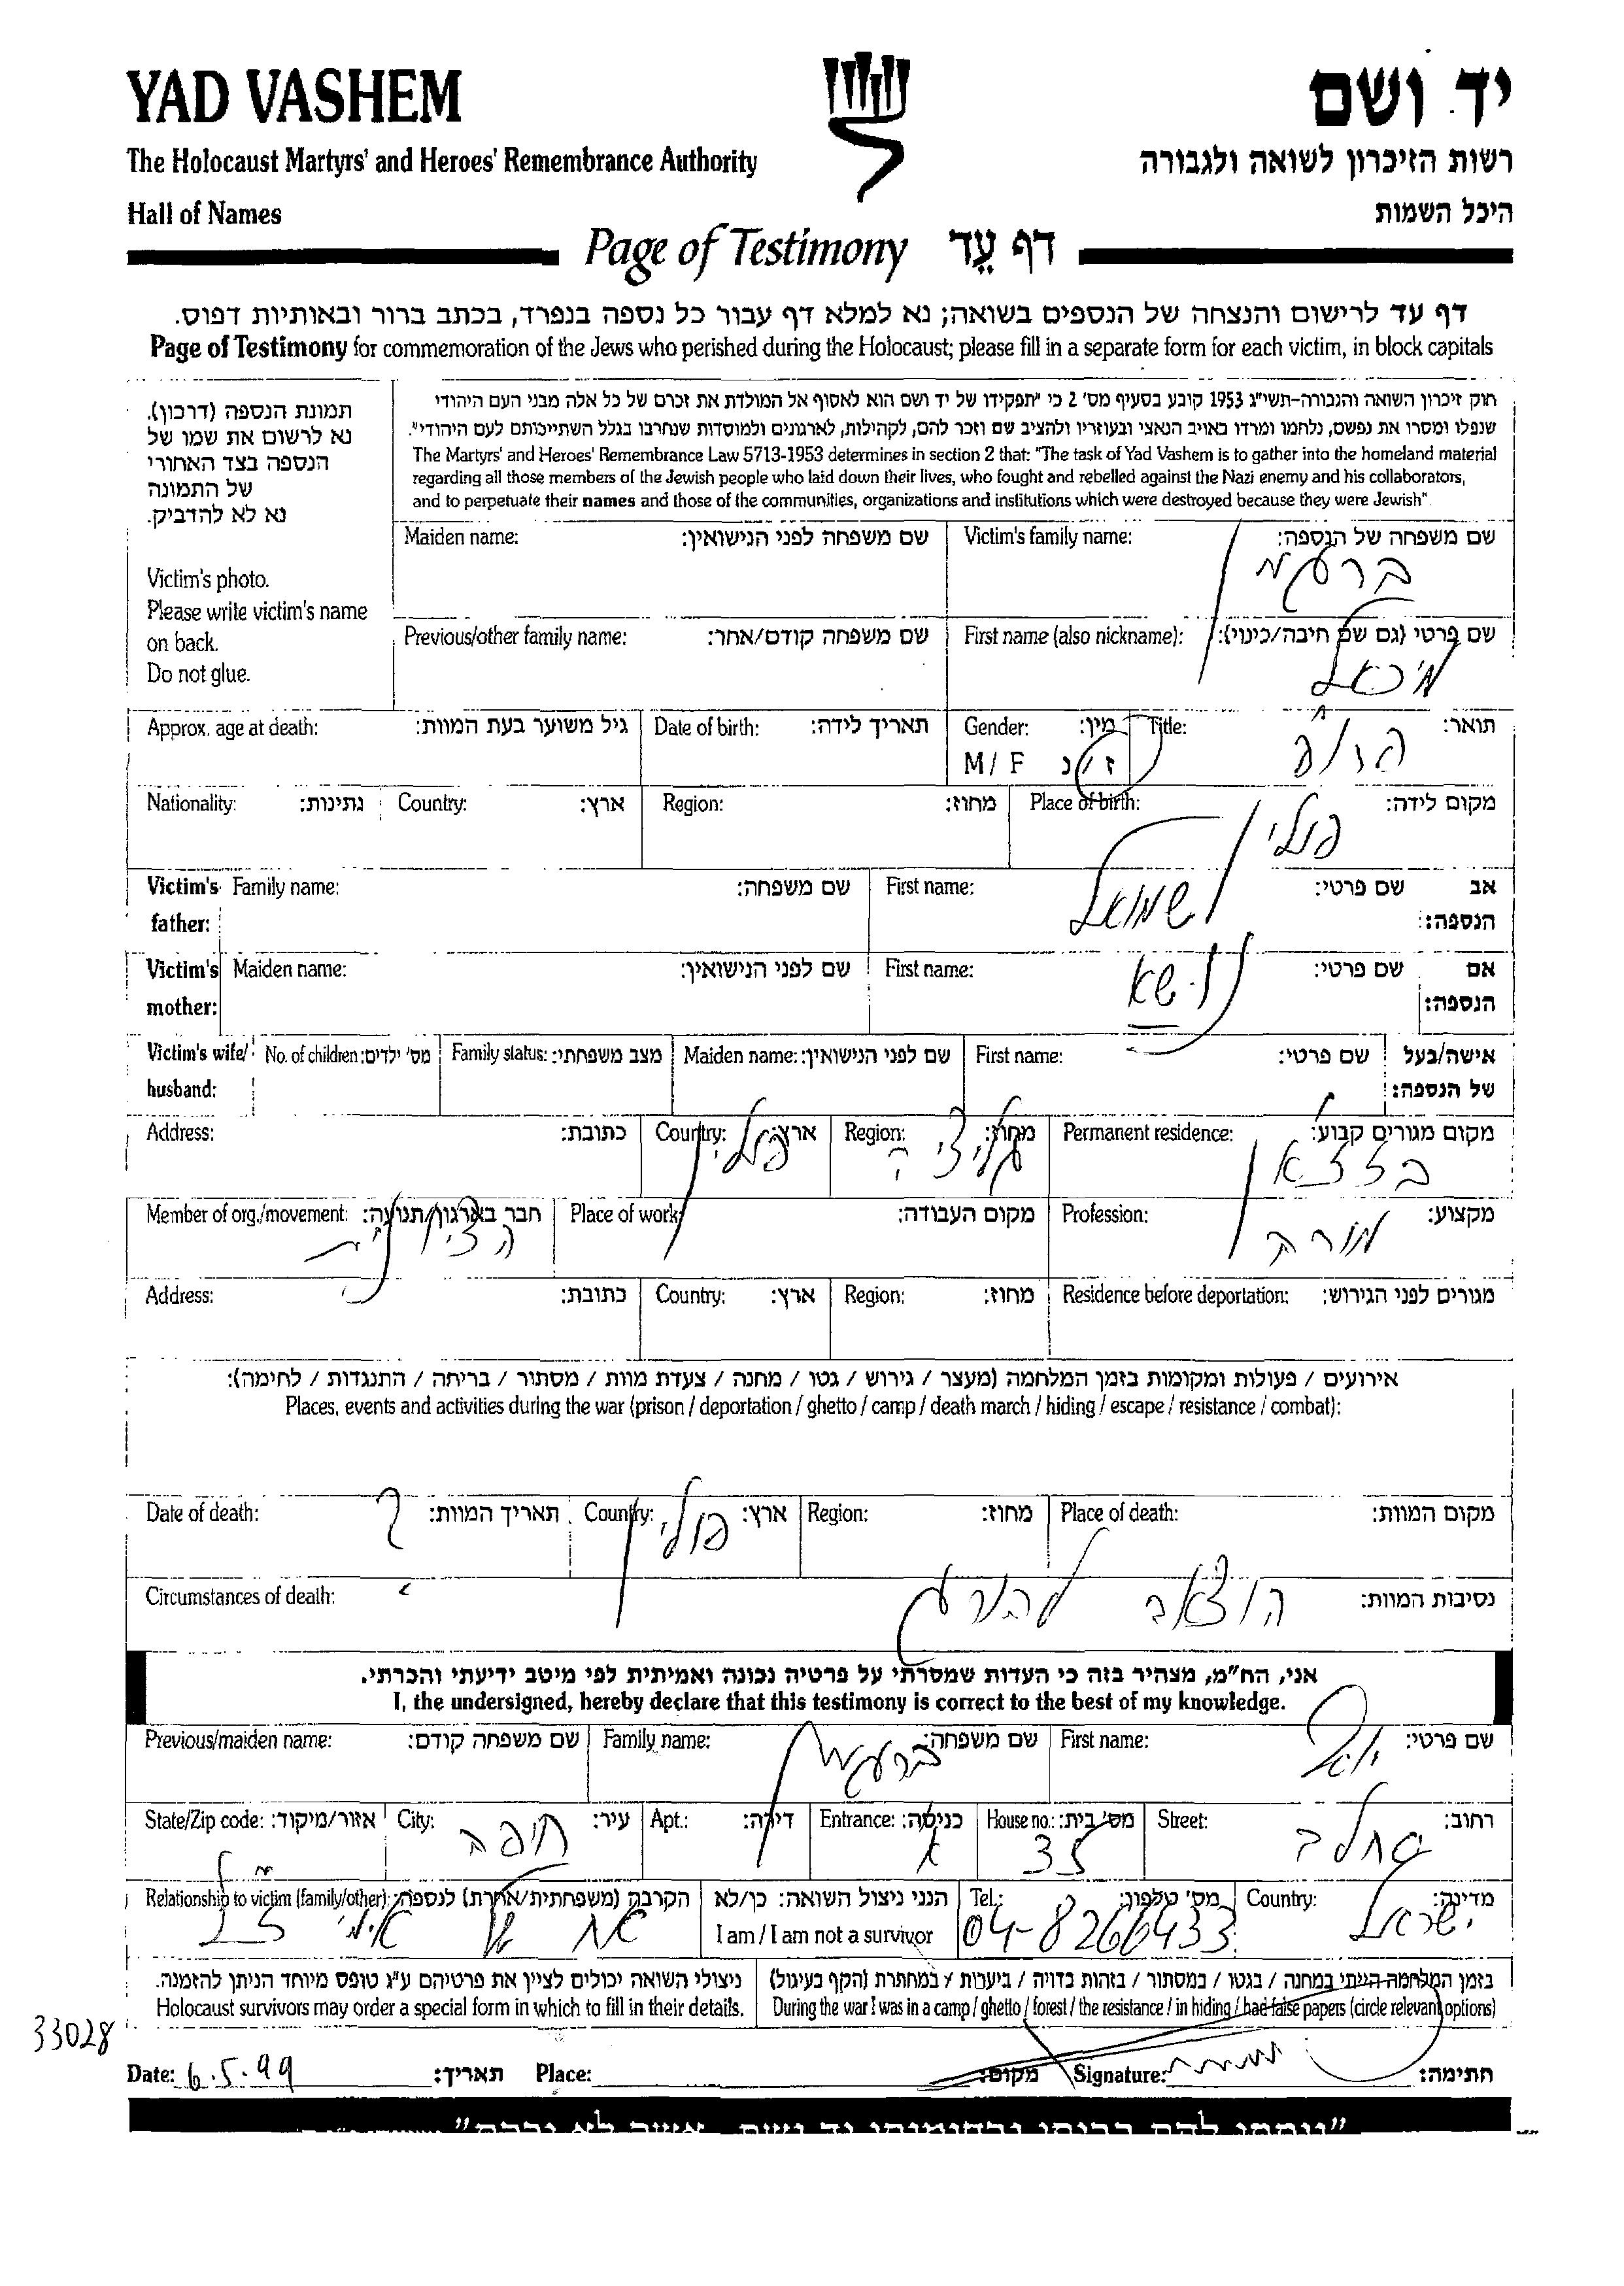 YAD VASHEM
יד ושם
The Holocaust Martyrs' and Heroes' Remembrance Authority
רשות הזיכרון לשואה ולגבורה
Hall of Names
היכל השמות
Page of Testimony דף עֵד
דף עד לרישום והנצחה של הנספים בשואה; נא למלא דף עבור כל נספה בנפרד, בכתב ברור ובאותיות דפוס.
Page of Testimony for commemoration of the Jews who perished during the Holocaust; please fill in a separate form for each victim, in block capitals
תמונת הנספה (דרכון).
נא לרשום את שמו של
הנספה בצד האחורי
של התמונה
נא לא להדביק.
Victim's photo.
Please write victim's name
on back.
Do not glue.
חוק זיכרון השואה והגבורה-תשי"ג 1953 קובע בסעיף מס' 2 כי "תפקידו של יד ושם הוא לאסוף אל המולדת את זכרם של כל אלה מבני העם היהודי
שנפלו ומסרו את נפשם, נלחמו ומרדו באויב הנאצי ובעוזריו ולהציב שם וזכר להם, לקהילות, לארגונים ולמוסדות שנחרבו בגלל השתייכותם לעם היהודי".
The Martyrs' and Heroes' Remembrance Law 5713-1953 determines in section 2 that: "The task of Yad Vashem is to gather into the homeland material
regarding all those members of the Jewish people who laid down their lives, who fought and rebelled against the Nazi enemy and his collaborators,
and to perpetuate their names and those of the communities, organizations and institutions which were destroyed because they were Jewish".
Maiden name: שם משפחה לפני הנישואין: Victim's family name: שם משפחה של הנספה:
Previous/other family name: שם משפחה קודם/אחר: First name (also nickname): שם פרטי (גם שם חיבה/כינוי):
מיכאל
Approx. age at death: גיל משוער בעת המוות: Date of birth: תאריך לידה: Gender: מין: Title: תואר:
M / F ז / נ
Nationality: נתינות: Country: ארץ: Region: מחוז: Place of birth: מקום לידה:
פולין
Victim's father: Family name: שם משפחה: First name: שם פרטי: אב הנספה:
שמואל
Victim's mother: Maiden name: שם לפני הנישואין: First name: שם פרטי: אם הנספה:
Victim's wife/ husband: No. of children: מס' ילדים: Family status: מצב משפחתי: Maiden name: שם לפני הנישואין: First name: שם פרטי: אישה/בעל של הנספה:
Address: כתובת: Country: ארץ: Region: מחוז: Permanent residence: מקום מגורים קבוע:
פולין גליציה
Member of org./movement: חבר בארגון/תנועה: Place of work: מקום העבודה: Profession: מקצוע:
הציונית מורה
Address: כתובת: Country: ארץ: Region: מחוז: Residence before deportation: מגורים לפני הגירוש:
אירועים / פעולות ומקומות בזמן המלחמה (מעצר / גירוש / גטו / מחנה / צעדת מוות / מסתור / בריחה / התנגדות / לחימה):
Places, events and activities during the war (prison / deportation / ghetto / camp / death march / hiding / escape / resistance / combat):
Date of death: תאריך המוות: Country: ארץ: Region: מחוז: Place of death: מקום המוות:
? פולין
Circumstances of death: נסיבות המוות:
הוצאה להורג
אני, הח"מ, מצהיר בזה כי העדות שמסרתי על פרטיה נכונה ואמיתית לפי מיטב ידיעתי והכרתי.
I, the undersigned, hereby declare that this testimony is correct to the best of my knowledge.
Previous/maiden name: שם משפחה קודם: Family name: שם משפחה: First name: שם פרטי:
State/Zip code: אזור/מיקוד: City: עיר: Apt.: דירה: Entrance: כניסה: House no.: מס' בית: Street: רחוב:
חיפה א 35
Relationship to victim (family/other): הקרבה (משפחתית/אחרת) לנספה: הנני ניצול השואה: כן/לא Tel.: מס' טלפון: Country: מדינה:
I am / I am not a survivor
אח של אימי ז"ל 04-8266433 ישראל
ניצולי השואה יכולים לציין את פרטיהם ע"ג טופס מיוחד הניתן להזמנה. בזמן המלחמה הייתי במחנה / בגטו / במסתור / בזהות בדויה / ביערות / במחתרת (הקף בעיגול)
Holocaust survivors may order a special form in which to fill in their details. During the war I was in a camp / ghetto / forest / the resistance / in hiding / had false papers (circle relevant options)
33028
Date: 6.5.99 תאריך: Place: מקום: Signature: חתימה: